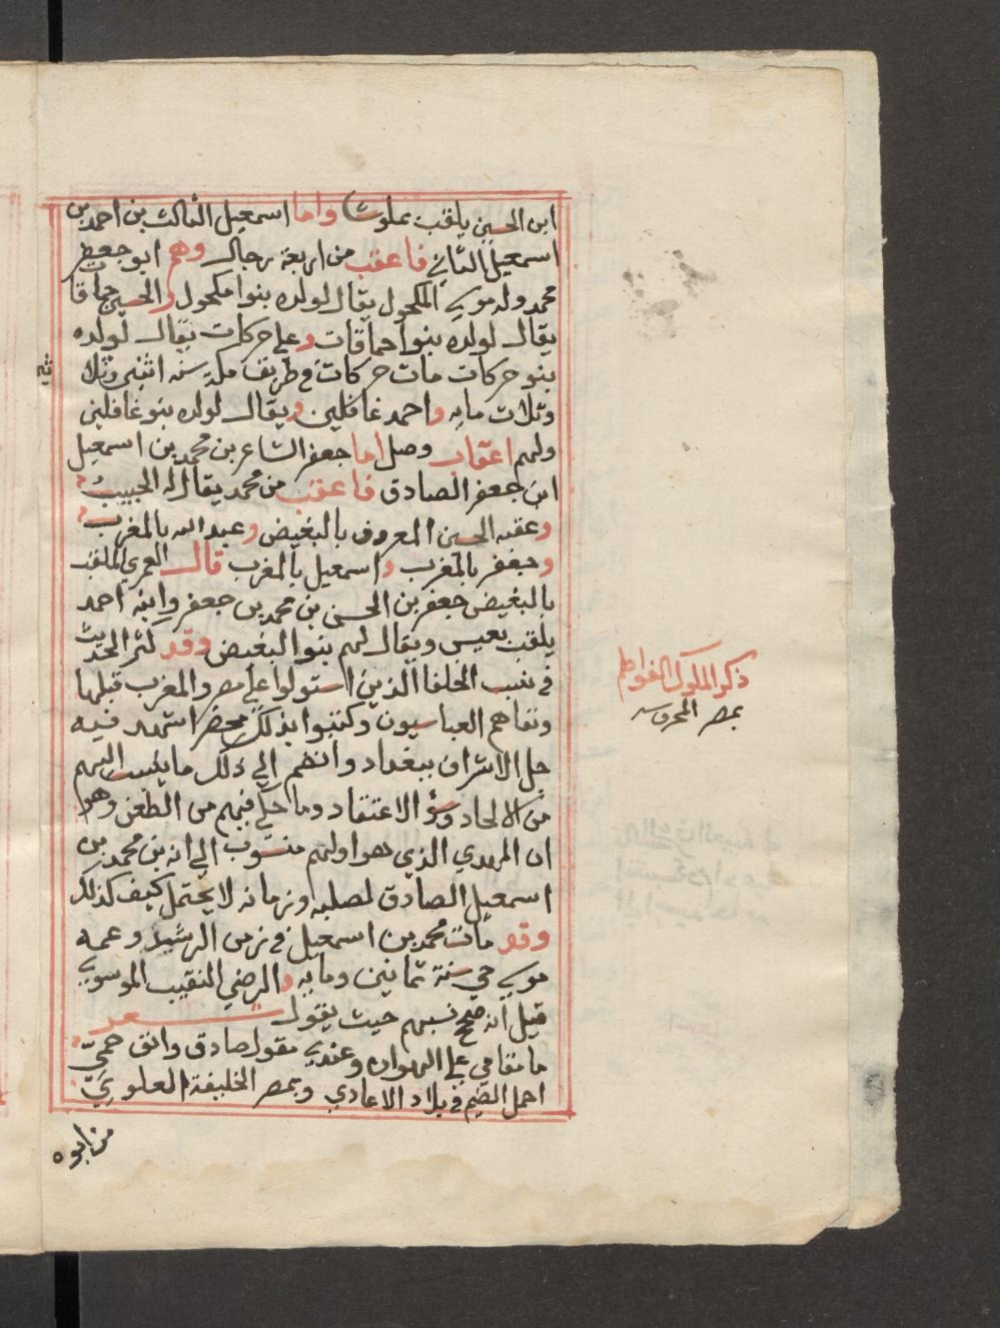 ابن الحسين يلقب بملوشا واما اسمعيل الثالث بن احمد بن
اسمعيل الثاني فاعقب من اربعة رجال وهم ابو جعفر
محمد ولد موسي المكحول يقال لولده بنوا مكحول والحسين حماقا
يقال لولده بنوا حماقات وعلي حركات يقال لولده
بنو حركات مات حركات في طريق مكة سنه اثنين وثلا
ثين
وثلاث مايه واحمد غافلين ويقال لولده بنو غافلين
ولهم اعقاب وصل اما جعفر الشاعر بن محمد بن اسمعيل
ابن جعفر الصادق فاعقب من محمد يقال له الحبيب
وعقبه الحسين المعروف بالبغيض وعبد الله بالمغرب
وجعفر بالمغرب واسمعيل بالمغرب قال العمري الملقب
بالبغيض جعفر بن الحسن بن محمد بن جعفر وابنه احمد
يلقب بعيس ويقال لهم بنوا البغيض وقد كثر الحديث
في نسب الخلفا الذين استولوا علي مصر والمغرب قبلها
ونفاهم العباسيون وكتبوا بذلك محضرا شهد فيه
جل الاشراف ببغداد وانضم الي ذلك ما ينسب اليهم
من الالحاد وسؤ الاعتقاد وما حكي فيهم من الطعن وهو
ان المهدي الذي هو اولهم منسوب الي انه بن محمد بن
اسمعيل الصادق لصلبه وزمانه لا يحتمل كيف كذلك
وقد مات محمد بن اسمعيل في زمن الرشيد وعمه
موسي حي سنة ثمانين ومايه والرضي النقيب الموسوي
قيل انه صحح نسبهم حيث يقول شعر
ما مقامي علي الهوان وعندي مقول صادق وانف حمي
احمل الضيم في بلاد الاعادي وبمصر الخليفة العلوي
من ابوه
ذكر الملوك الفواطم
بمصر المحروسه